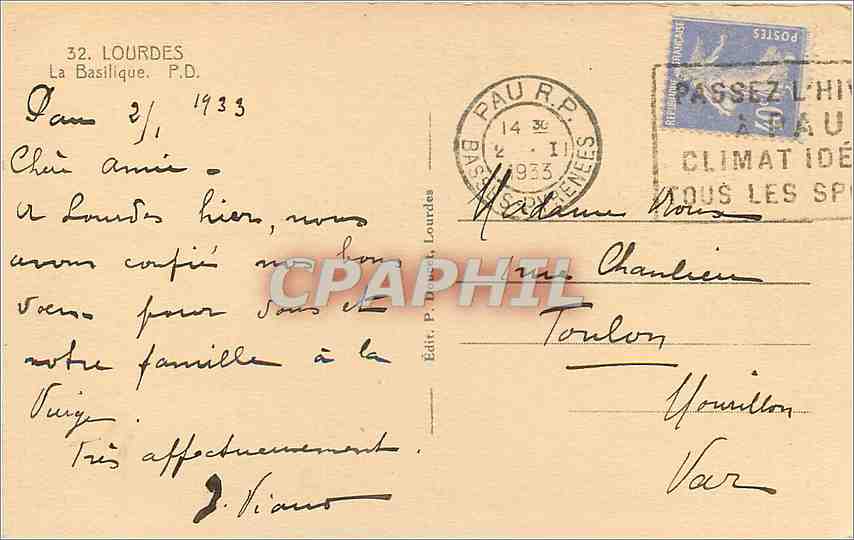 32. LOURDES
La Basilique. P.D.
Pau 2/1 1933
Chère amie -
A Lourdes hier, nous
avons confié nos bons
voeux pour vous et
notre famille à la
Vierge.
Très affectueusement.
J. Viaud
Edit. P. Doucet, Lourdes
CPAPHIL
PAU R.P.
14 30
2 - II
1933
BASSES-PYRENEES
REPUBLIQUE FRANÇAISE
POSTES
40c
PASSEZ L'HIV
à PAU
CLIMAT IDÉ
TOUS LES SPO
Madame Roux
1 rue Chanlieu
Toulon
Mourillon
Var